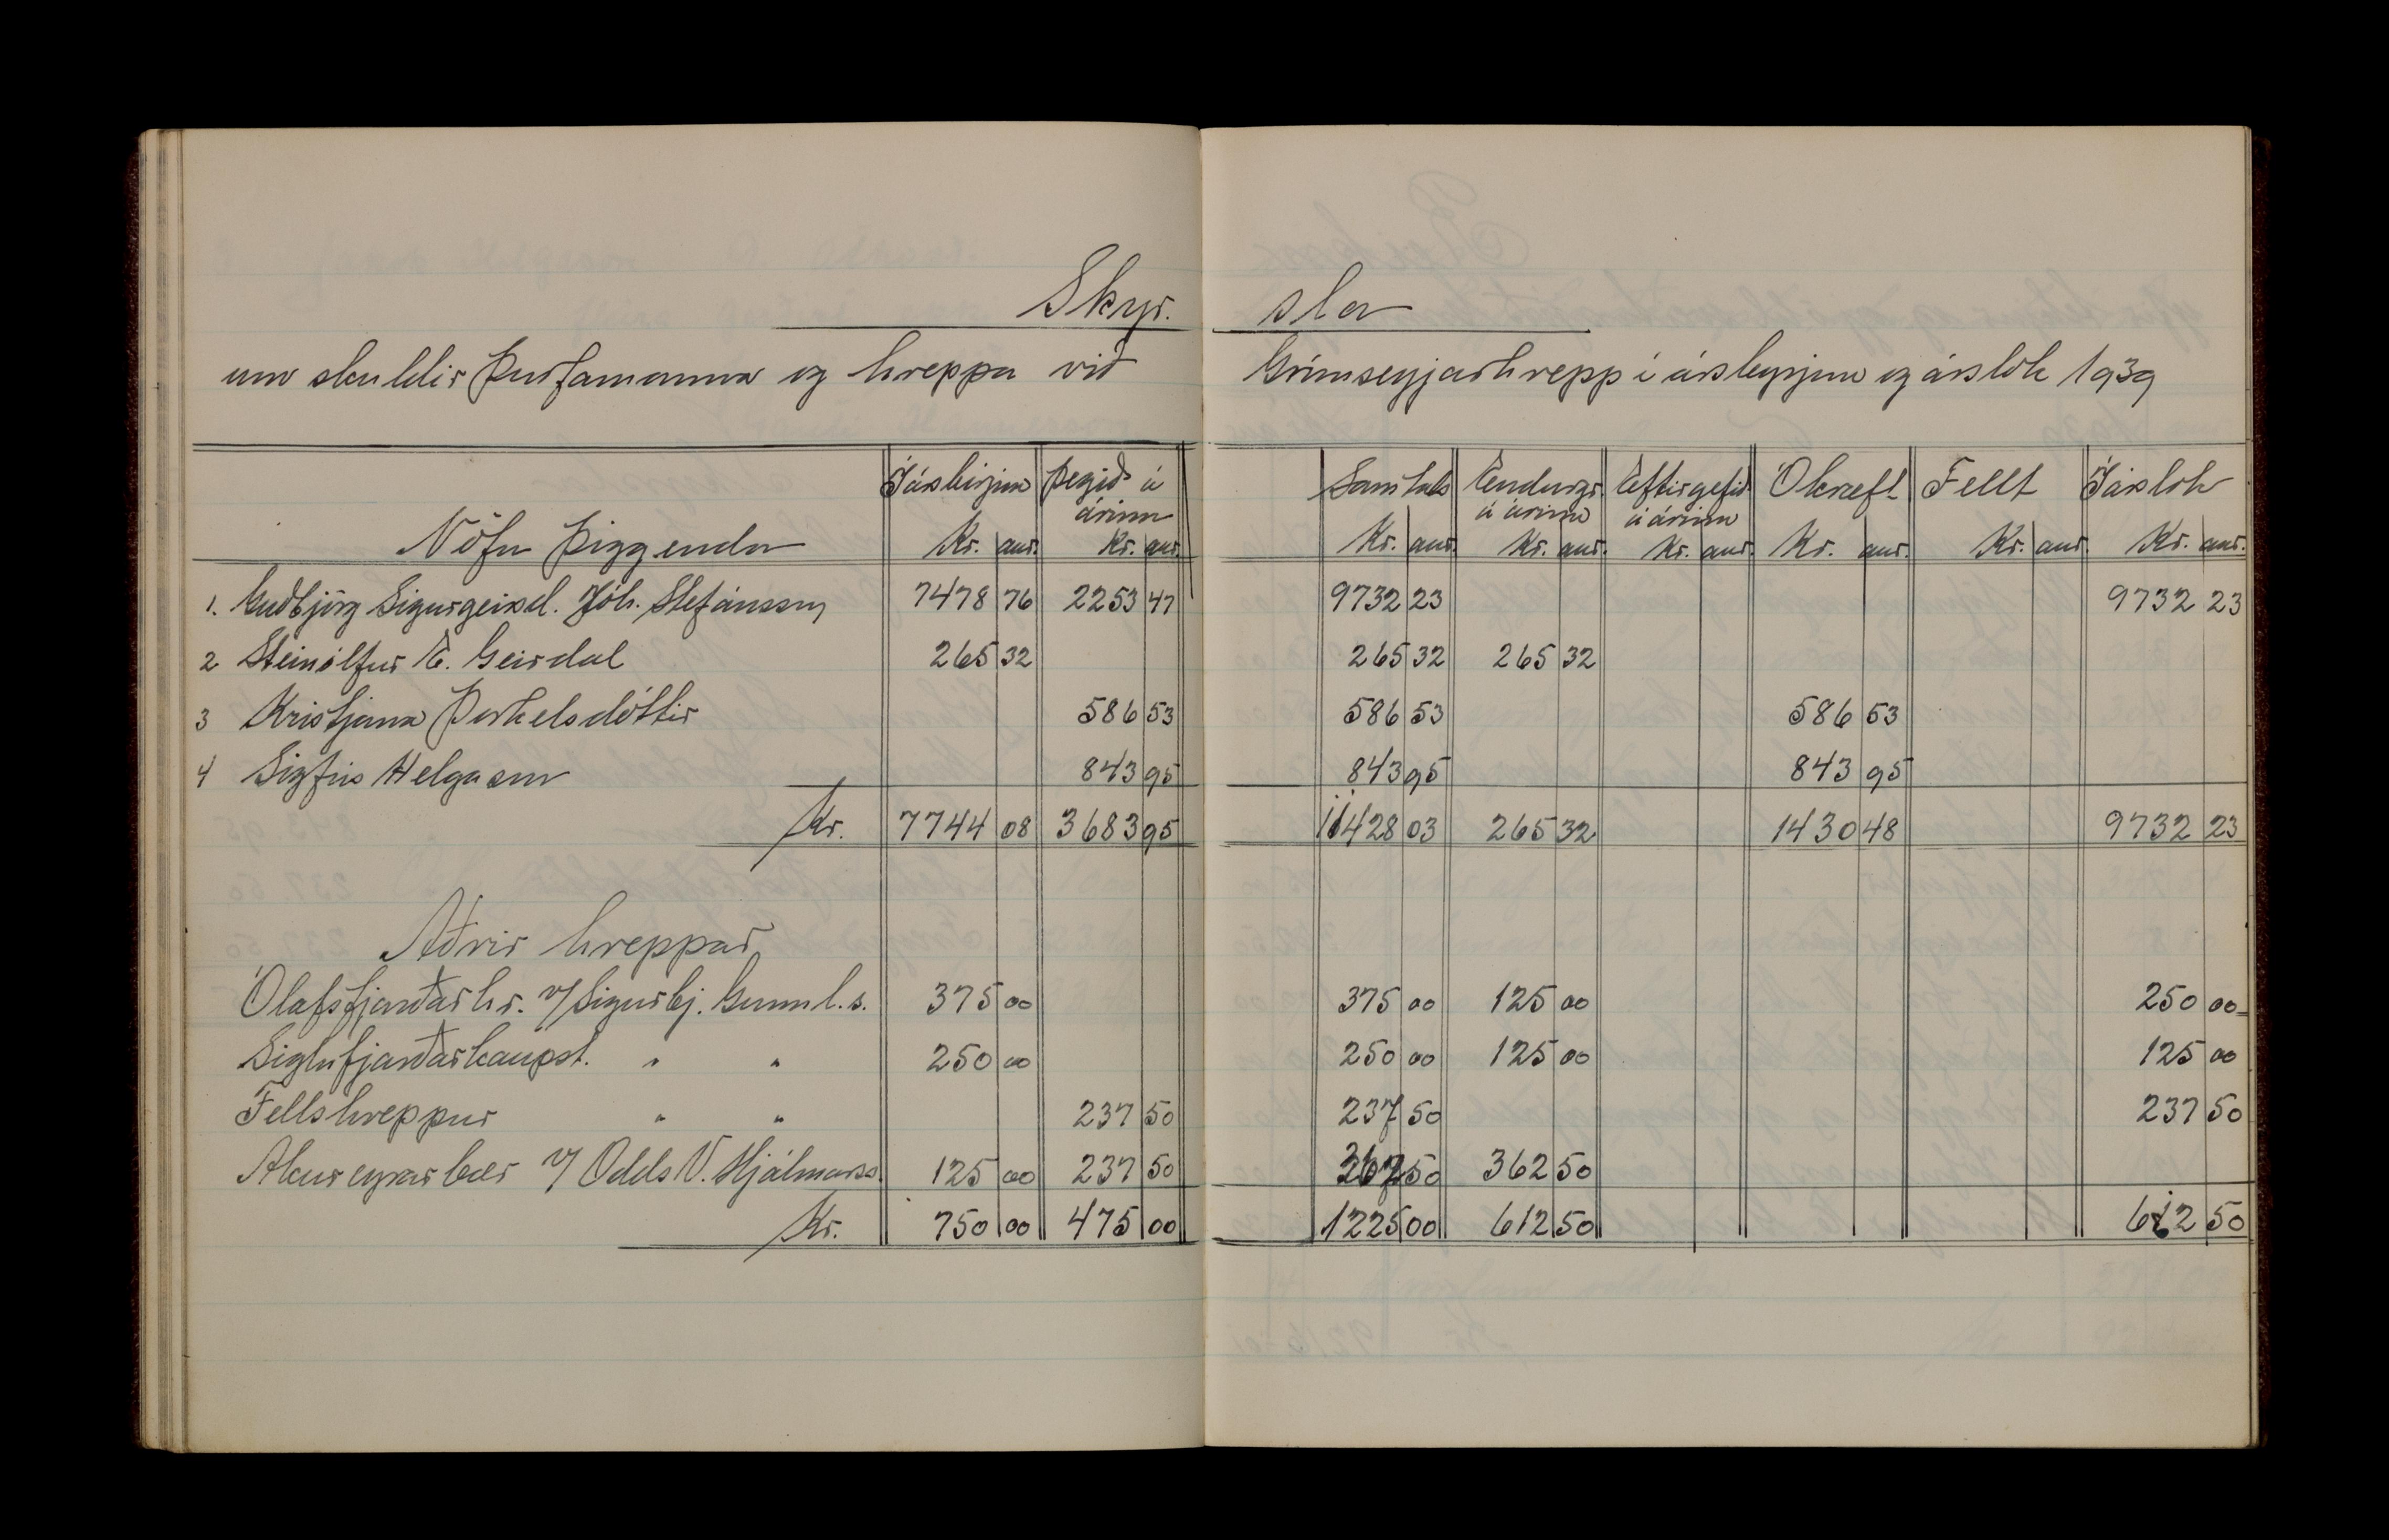 Skýr. sla
um skuldir þurfamanna og hreppa við Grímseyjarhrepp í ársbyrjun og árslok 1939
Nöfn þiggenda Í ársbirjun Þegið á árinu Samtals Endurgr. á árinu Eftirgefið á árinu Ókræft Fellt Í árslok
Kr. aur. Kr. aur. Kr. aur. Kr. aur. Kr. aur. Kr. aur. Kr. aur. Kr. aur.
1. Guðbjörg Sigurgeirsd. Jóh. Stefánssy 7478 76 2253 47 9732 23 9732 23
2 Steinólfur E. Geirdal 265 32 265 32 265 32
3 Kristjana Þorkelsdóttir 586 53 586 53 586 53
4 Sigfús Helgason 843 95 843 95 843 95
Kr. 7744 08 3683 95 11428 03 265 32 1430 48 9732 23
Aðrir hreppar
Ólafsfjarðarhr. v/ Sigurbj. Gunnl.s. 375 00 375 00 125 00 250 00
Siglufjarðarkaupst. " " 250 00 250 00 125 00 125 00
Fellshreppur " " 237 50 237 50 237 50
Akureyrarbær v/ Odds V. Hjálmarss. 125 00 237 50 362 50 362 50
Kr. 750 00 475 00 1225 00 612 50 612 50